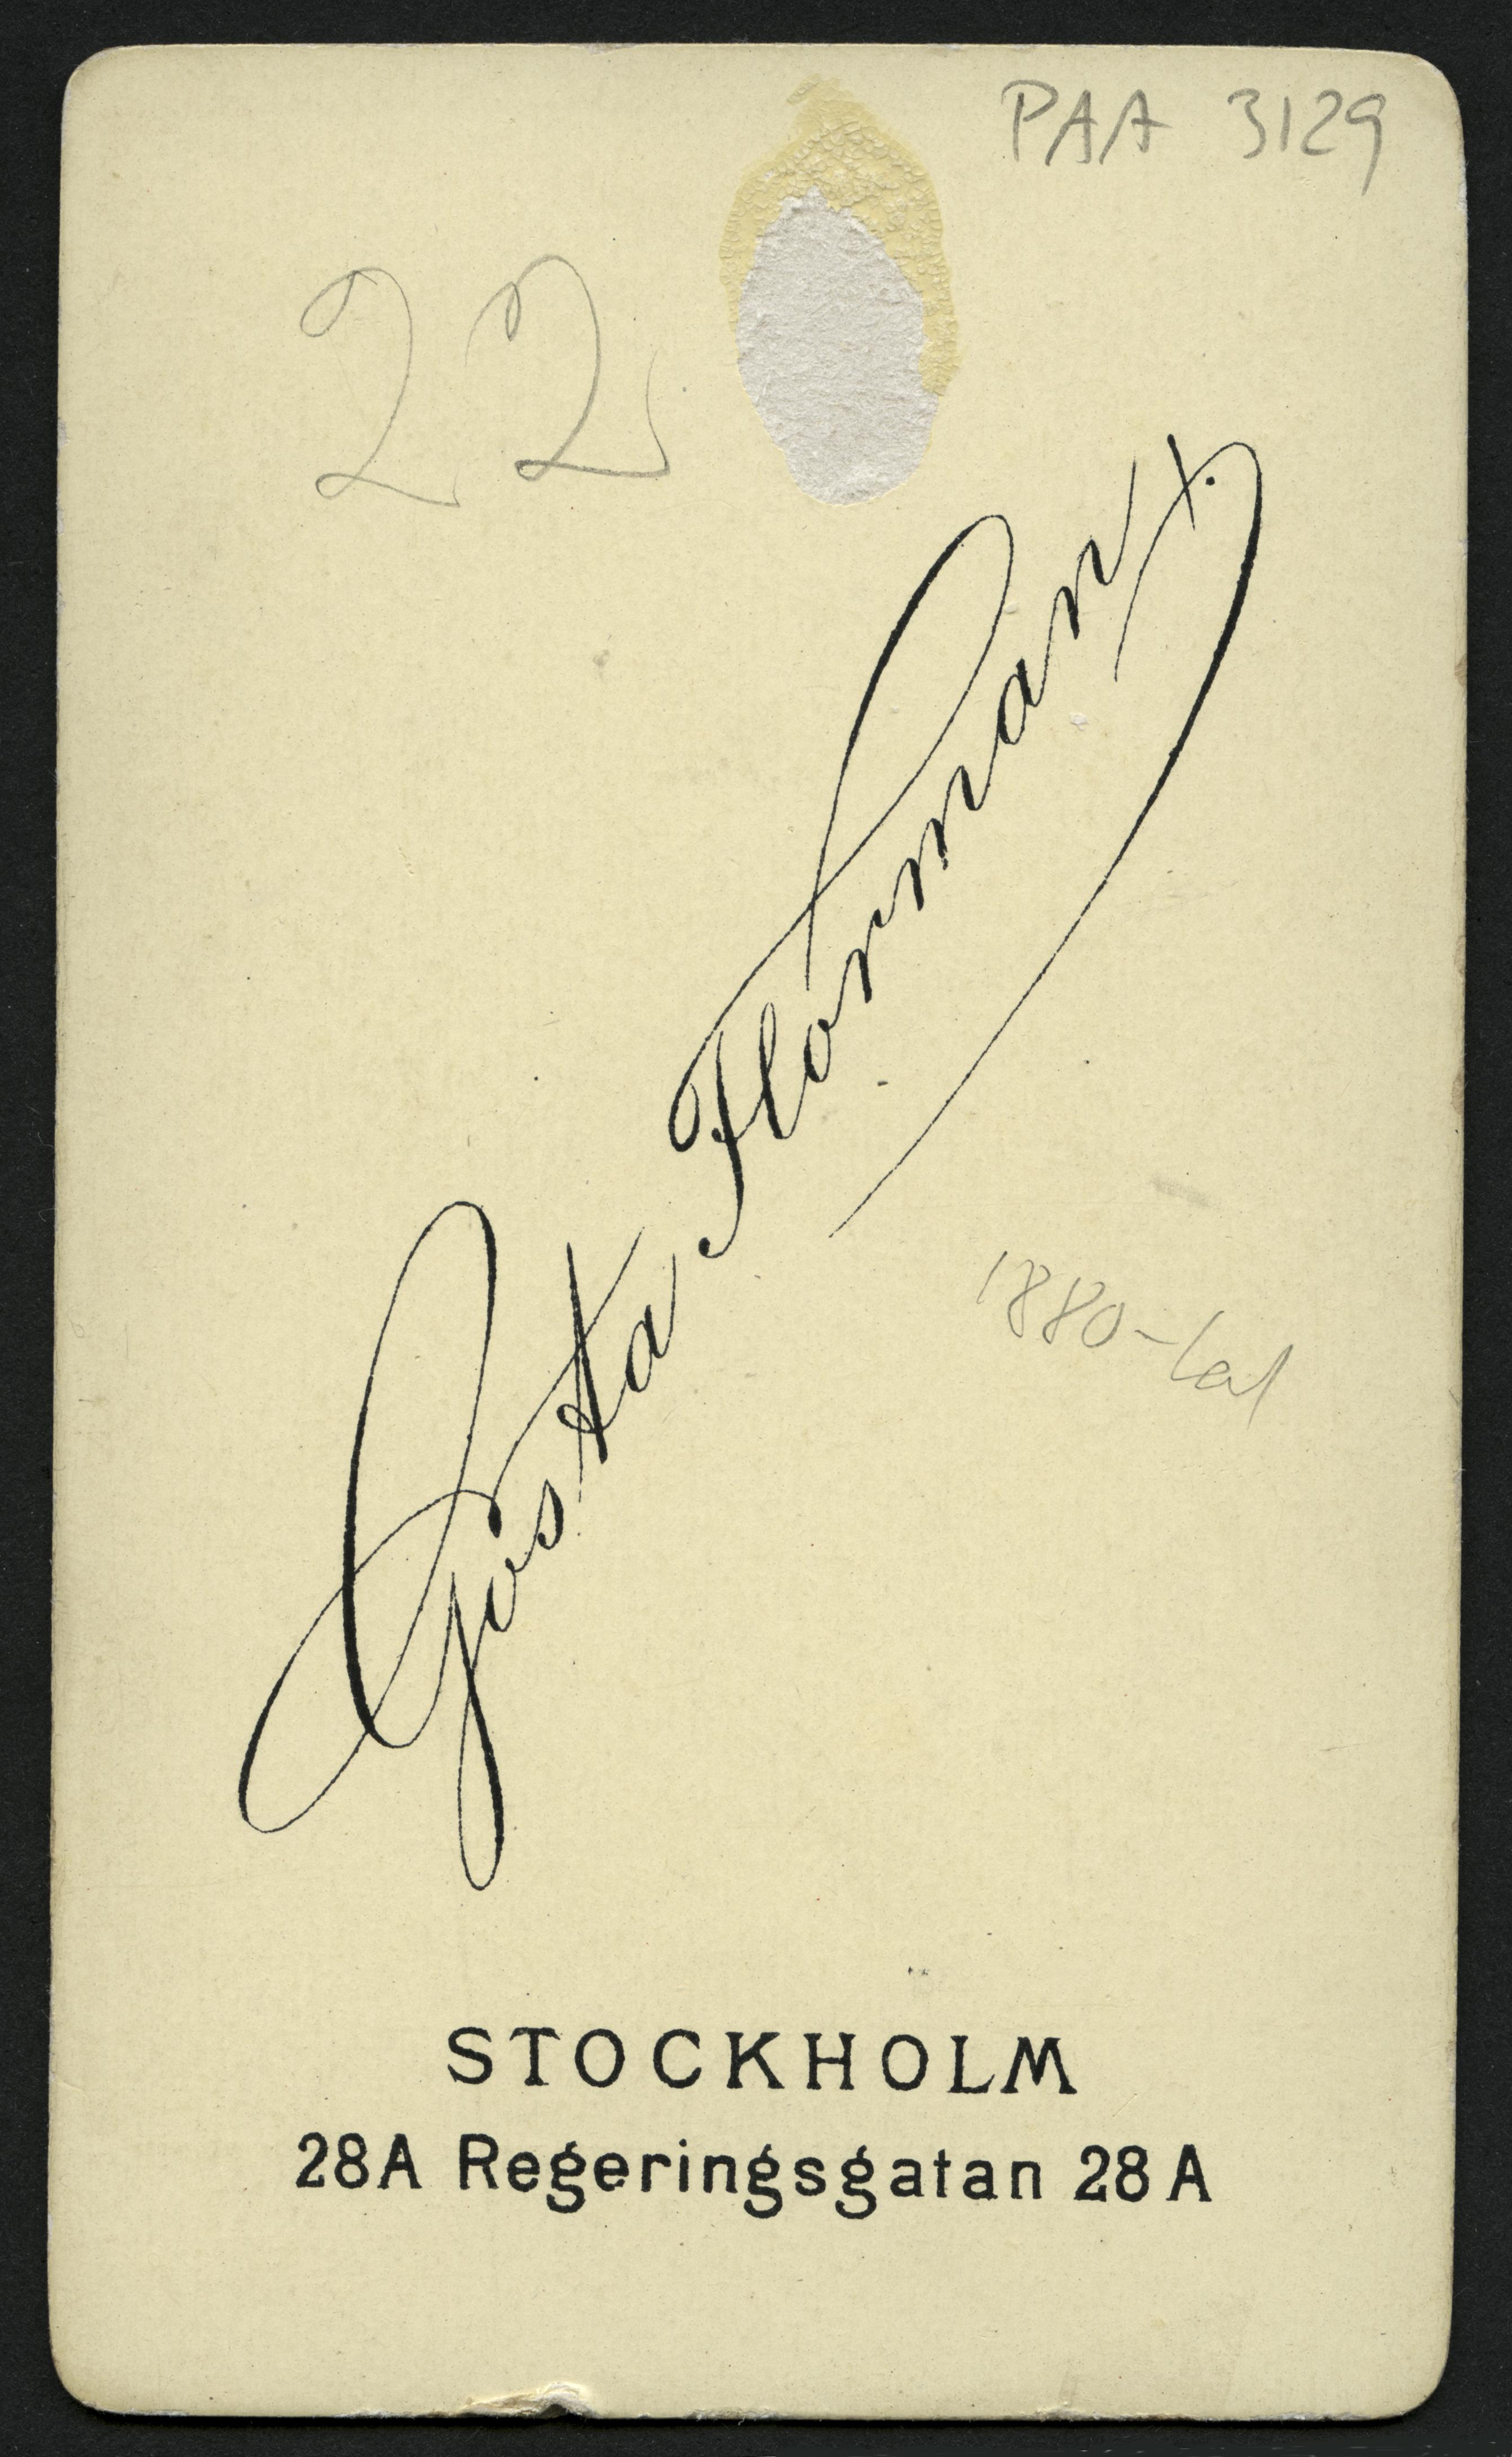 PAA 3129
22
Gösta Florman
1880-tal
STOCKHOLM
28A Regeringsgatan 28A